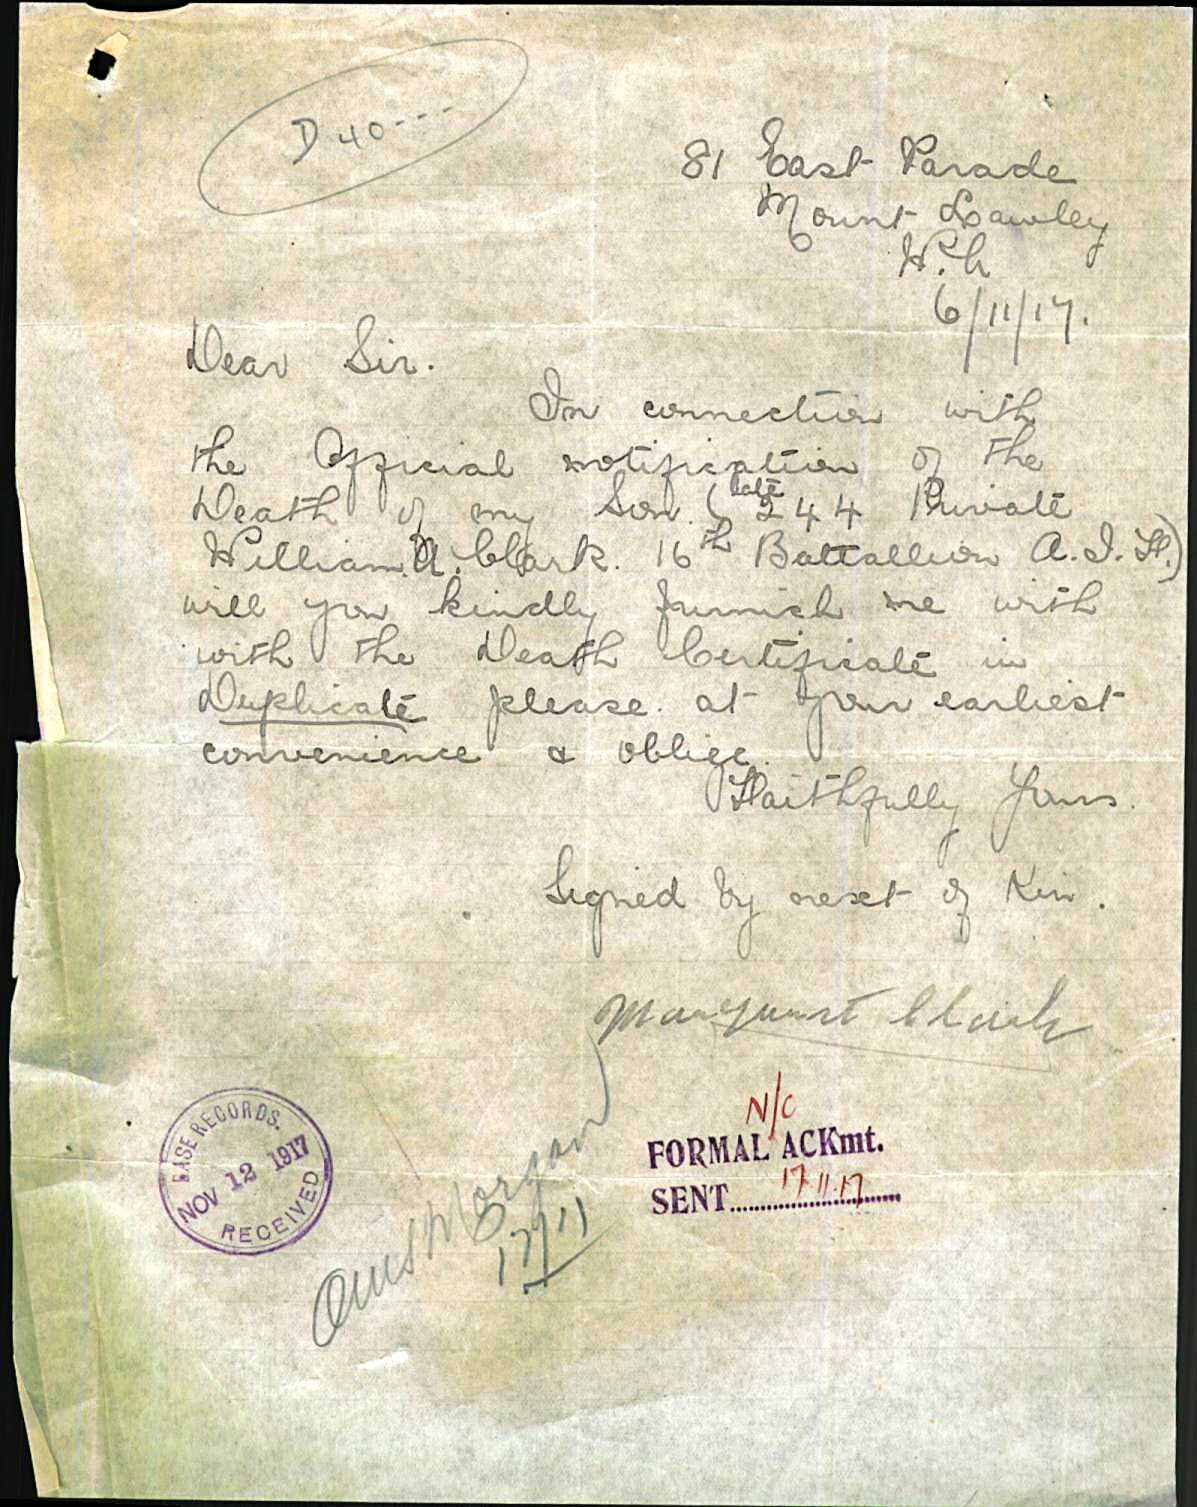 D 40---
81 East Parade
Mount Lawley
W.A
6/11/17.
Dear Sir.
In connection with
the Official notification of the
Death of my Son. (late 244 Private
William. A. Clark. 16th Battallion A.I.F.)
will you kindly furnish me with
with the Death Certificate in
Duplicate please. at your earliest
convenience & oblige.
Faithfully Yours.
Signed by next of Kin.
Margaret Clark
BASE RECORDS.
NOV 12 1917
RECEIVED
N/C
FORMAL ACKmt.
SENT 17.11.17
Morgan
17/11